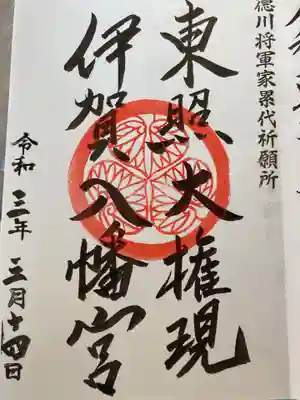 徳川将軍家累代祈願所
東照大権現
伊賀八幡宮
令和三年三月十四日